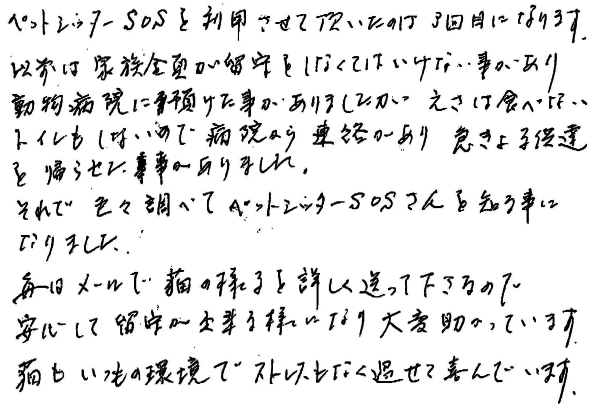 ペットシッターSOSを利用させて頂いたのは3回目になります。
以前は家族全員が留守をしなくてはいけない事があり
動物病院に預けた事がありましたが えさは食べない
トイレもしないので病院から連絡があり 急きょ子供達
を帰らせた事がありました。
それで色々調べてペットシッターSOSさんを知る事に
なりました。
毎日メールで猫の様子を詳しく送って下さるので
安心して留守が出来る様になり大変助かっています。
猫もいつもの環境でストレスもなく過せて喜んでいます。